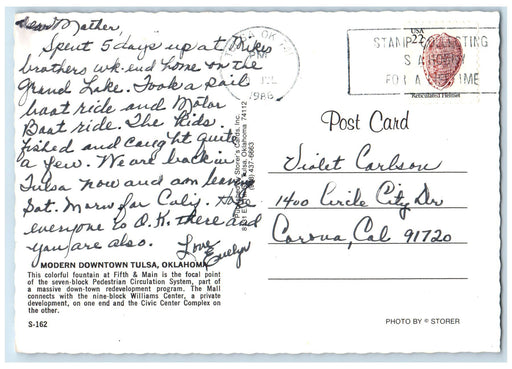 Dear Mother,
Spent 5 days up at Mikes
brothers wk-end home on the
Grand Lake. Took a sail
boat ride and Motor
Boat ride. The kids
fished and caught quite
a few. We are back in
Tulsa now and am leaving
Sat. Morn for Calif. Hope
everyone is O.K. there and
you are also. Love
Evelyn
MODERN DOWNTOWN TULSA, OKLAHOMA
This colorful fountain at Fifth & Main is the focal point
of the seven-block Pedestrian Circulation System, part of
a massive down-town redevelopment program. The Mall
connects with the nine-block Williams Center, a private
development, on one end and the Civic Center Complex on
the other.
S-162
Storer's Cards, Inc.
Tulsa, Oklahoma 74112
437-6663
TULSA OK
PM
JUL
1986
STAMP COLLECTING
FOR A LIFETIME
USA
22
Reticulated Helmet
Post Card
Violet Carlson
1400 Circle City Dr
Corona, Cal 91720
PHOTO BY © STORER